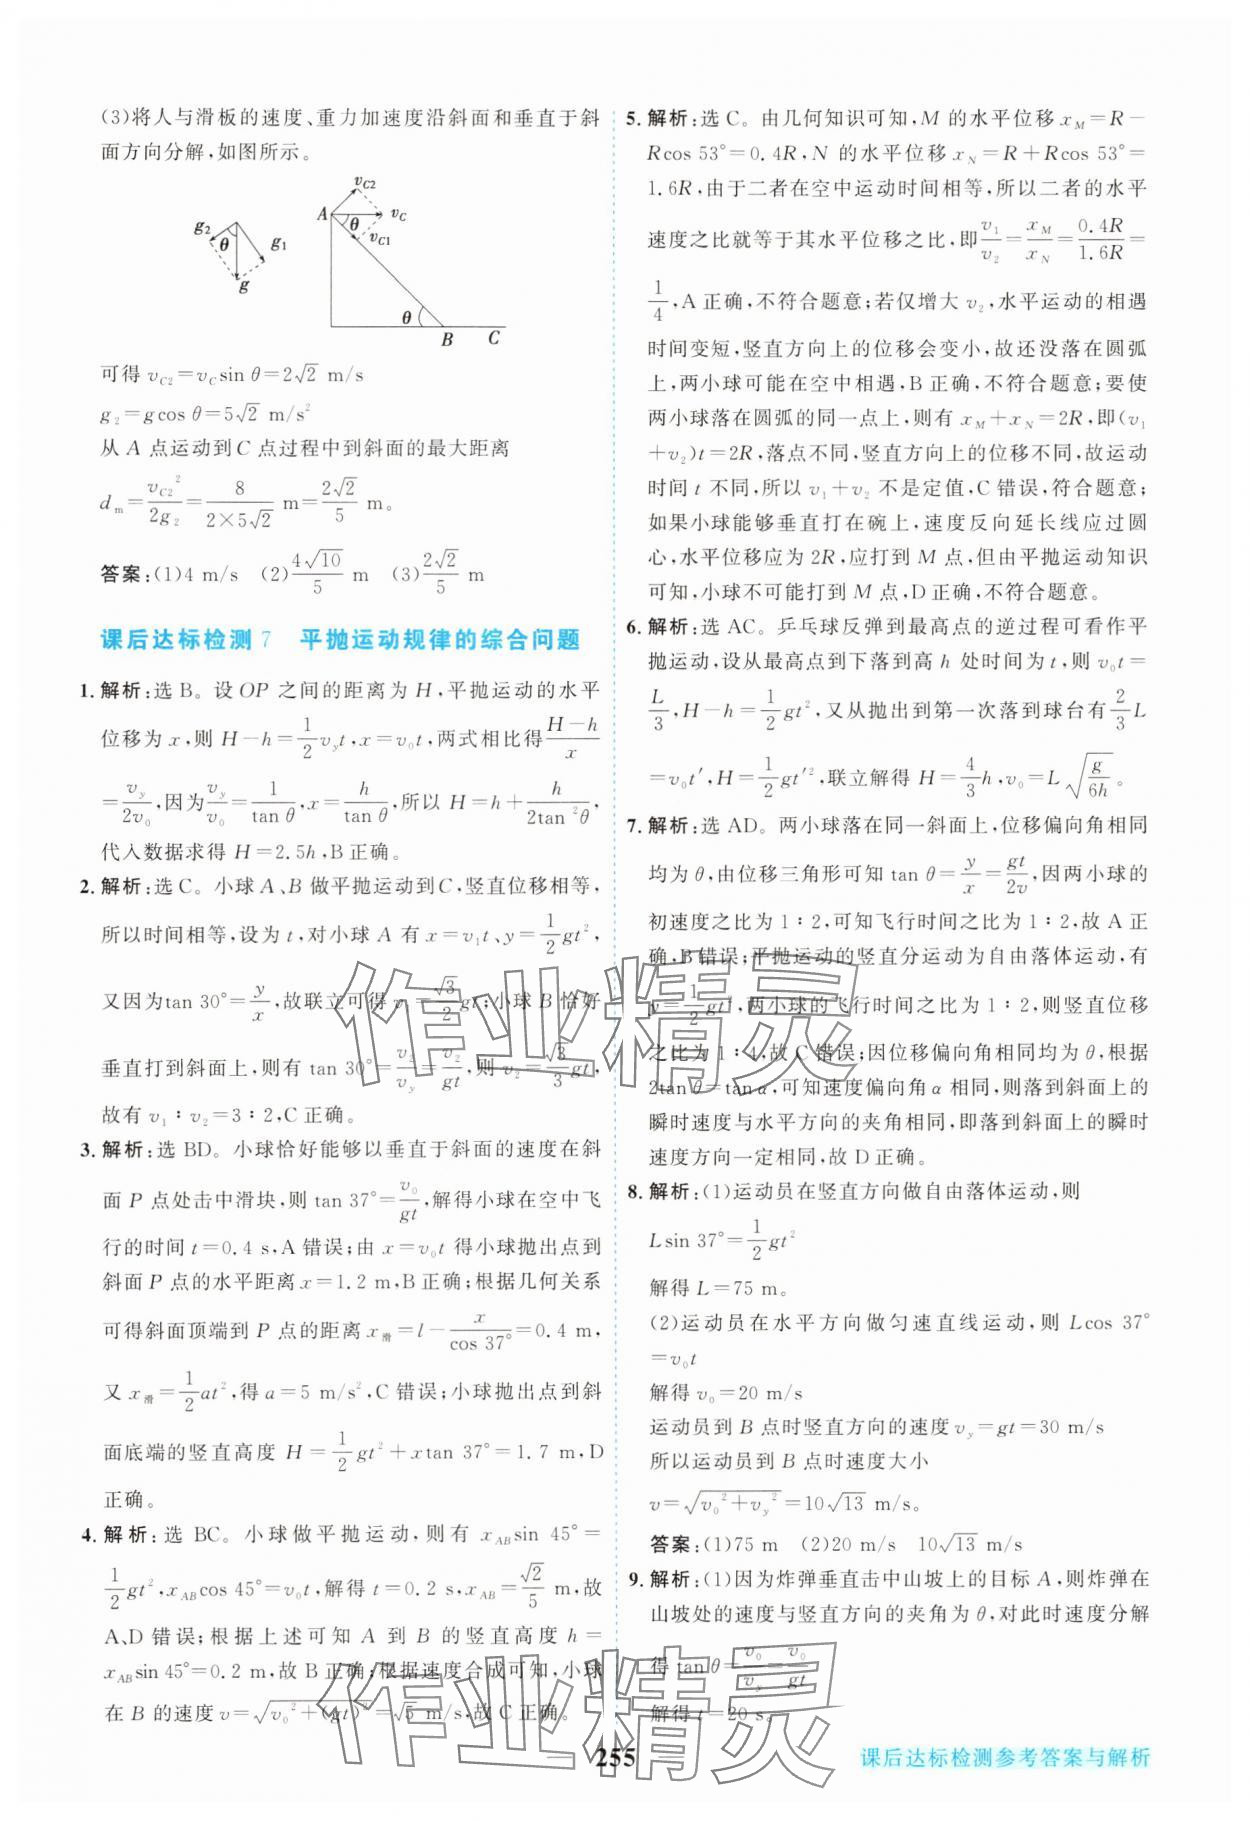 (3)将人与滑板的速度、重力加速度沿斜面和垂直于斜
面方向分解,如图所示。
v_{C2}
A θ v_C
v_{C1}
g₂ θ g₁
g
θ
B C
可得 v_{C2}=v_C sin θ=2√2 m/s
g₂=g cos θ=5√2 m/s²
从 A 点运动到 C 点过程中到斜面的最大距离
d_m=v_{C2}²/2g₂=8/(2×5√2) m=2√2/5 m。
答案:(1)4 m/s (2)4√10/5 m (3)2√2/5 m
课后达标检测 7 平抛运动规律的综合问题
1. 解析:选 B。设 OP 之间的距离为 H,平抛运动的水平
位移为 x,则 H-h=1/2 v_y t,x=v₀t,两式相比得(H-h)/x
=v_y/2v₀,因为v_y/v₀=1/tan θ,x=h/tan θ,所以 H=h+h/(2tan²θ),
代入数据求得 H=2.5h,B 正确。
2. 解析:选 C。小球 A、B 做平抛运动到 C,竖直位移相等,
所以时间相等,设为 t,对小球 A 有 x=v₁t、y=1/2 gt²,
又因为tan 30°=y/x,故联立可得 v₁=√3/2 gt;小球 B 恰好
垂直打到斜面上,则有 tan 30°=v₂/v_y=v₂/gt,则 v₂=√3/3 gt,
故有 v₁∶v₂=3∶2,C 正确。
3. 解析:选 BD。小球恰好能够以垂直于斜面的速度在斜
面 P 点处击中滑块,则 tan 37°=v₀/gt,解得小球在空中飞
行的时间 t=0.4 s,A 错误;由 x=v₀t 得小球抛出点到
斜面 P 点的水平距离 x=1.2 m,B 正确;根据几何关系
可得斜面顶端到 P 点的距离 x_滑=l-x/cos 37°=0.4 m,
又 x_滑=1/2 at²,得 a=5 m/s²,C 错误;小球抛出点到斜
面底端的竖直高度 H=1/2 gt²+xtan 37°=1.7 m,D
正确。
4. 解析:选 BC。小球做平抛运动,则有 x_{AB}sin 45°=
1/2 gt²,x_{AB}cos 45°=v₀t,解得 t=0.2 s,x_{AB}=√2/5 m,故
A、D 错误;根据上述可知 A 到 B 的竖直高度 h=
x_{AB}sin 45°=0.2 m,故 B 正确;根据速度合成可知,小球
在 B 的速度 v=√(v₀²+(gt)²)=√5 m/s,故 C 正确。
5. 解析:选 C。由几何知识可知,M 的水平位移 x_M=R-
Rcos 53°=0.4R,N 的水平位移 x_N=R+Rcos 53°=
1.6R,由于二者在空中运动时间相等,所以二者的水平
速度之比就等于其水平位移之比,即v₁/v₂=x_M/x_N=0.4R/1.6R=
1/4,A 正确,不符合题意;若仅增大 v₂,水平运动的相遇
时间变短,竖直方向上的位移会变小,故还没落在圆弧
上,两小球可能在空中相遇,B 正确,不符合题意;要使
两小球落在圆弧的同一点上,则有 x_M+x_N=2R,即(v₁
+v₂)t=2R,落点不同,竖直方向上的位移不同,故运动
时间 t 不同,所以 v₁+v₂ 不是定值,C 错误,符合题意;
如果小球能够垂直打在碗上,速度反向延长线应过圆
心,水平位移应为 2R,应打到 M 点,但由平抛运动知识
可知,小球不可能打到 M 点,D 正确,不符合题意。
6. 解析:选 AC。乒乓球反弹到最高点的逆过程可看作平
抛运动,设从最高点到下落到高 h 处时间为 t,则 v₀t=
L/3,H-h=1/2 gt²,又从抛出到第一次落到球台有2/3 L
=v₀t′,H=1/2 gt′²,联立解得 H=4/3 h,v₀=L√(g/6h)。
7. 解析:选 AD。两小球落在同一斜面上,位移偏向角相同
均为 θ,由位移三角形可知 tan θ=y/x=gt/2v,因两小球的
初速度之比为 1∶2,可知飞行时间之比为 1∶2,故 A 正
确,B 错误;平抛运动的竖直分运动为自由落体运动,有
y=1/2 gt²,两小球的飞行时间之比为 1∶2,则竖直位移
之比为 1∶4,故 C 错误;因位移偏向角相同均为 θ,根据
2tan θ=tan α,可知速度偏向角 α 相同,则落到斜面上的
瞬时速度与水平方向的夹角相同,即落到斜面上的瞬时
速度方向一定相同,故 D 正确。
8. 解析:(1)运动员在竖直方向做自由落体运动,则
Lsin 37°=1/2 gt²
解得 L=75 m。
(2)运动员在水平方向做匀速直线运动,则 Lcos 37°
=v₀t
解得 v₀=20 m/s
运动员到 B 点时竖直方向的速度 v_y=gt=30 m/s
所以运动员到 B 点时速度大小
v=√(v₀²+v_y²)=10√13 m/s。
答案:(1)75 m (2)20 m/s 10√13 m/s
9. 解析:(1)因为炸弹垂直击中山坡上的目标 A,则炸弹在
山坡处的速度与竖直方向的夹角为 θ,对此时速度分解
得 tan θ=v₀/v_y=v₀/gt
解得 t=20 s。
作业精灵
作业精灵
255
课后达标检测参考答案与解析